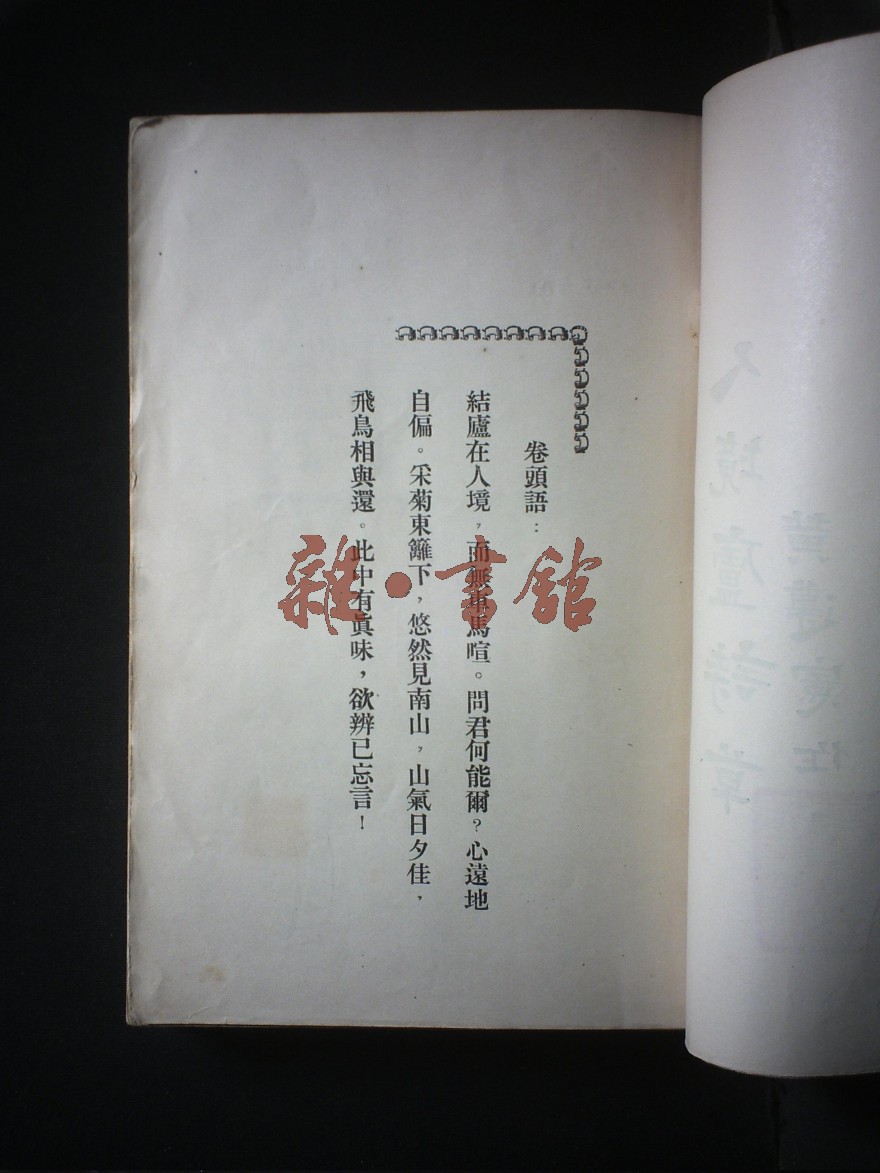 卷頭語：
結廬在人境，而無車馬喧。問君何能爾？心遠地
自偏。采菊東籬下，悠然見南山，山氣日夕佳，
飛鳥相與還。此中有眞味，欲辨已忘言！
雜·書舘
人境廬詩草
黃遵憲作